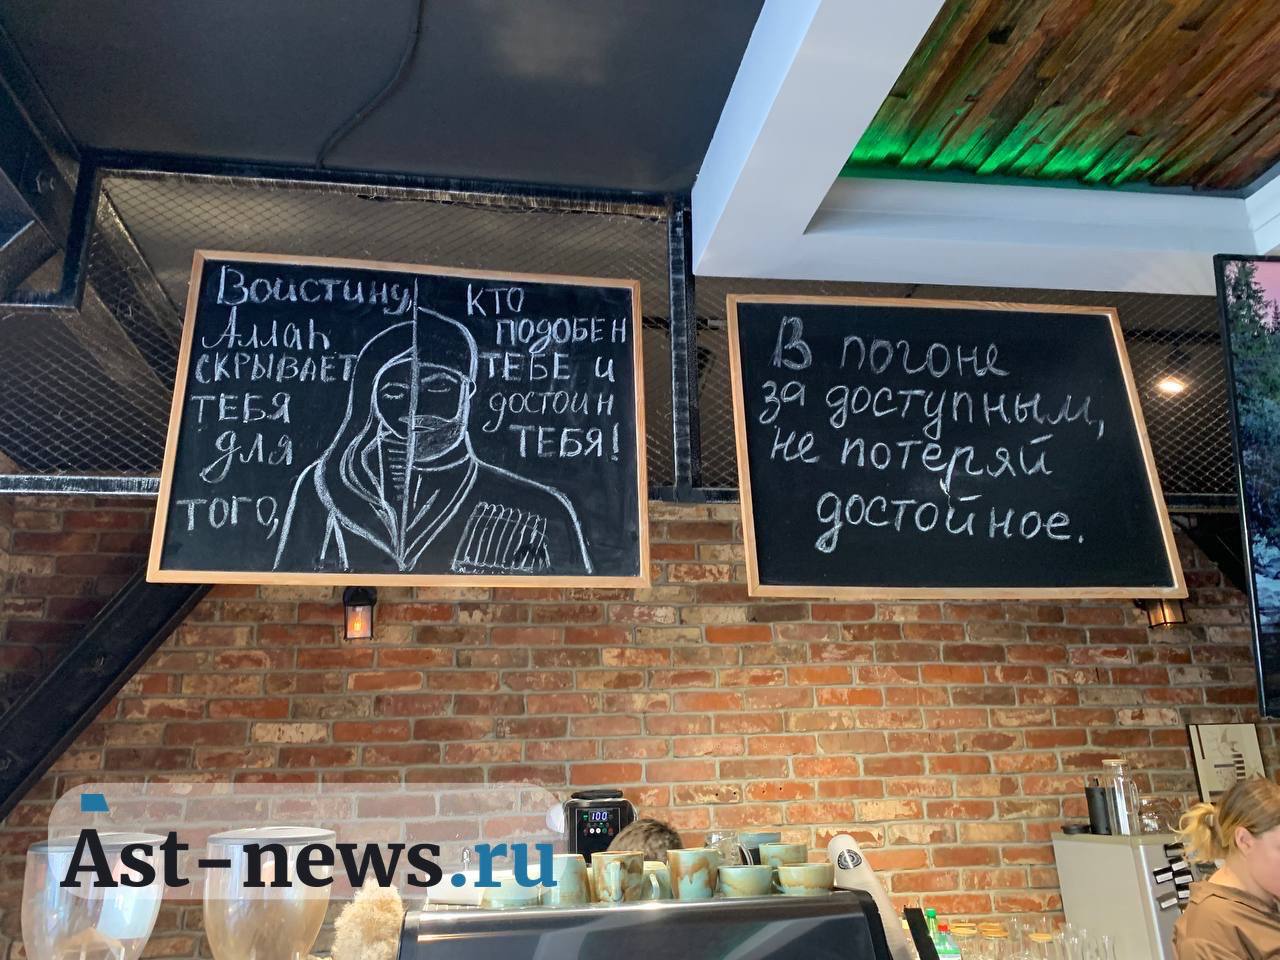 Воистину,
Аллаh
СКРЫВАЕТ
ТЕБЯ
для
того,
КТО
ПОДОБЕН
ТЕБЕ И
достоин
ТЕБЯ!
В погоне
за доступным,
не потеряй
достойное.
100
Ast-news.ru